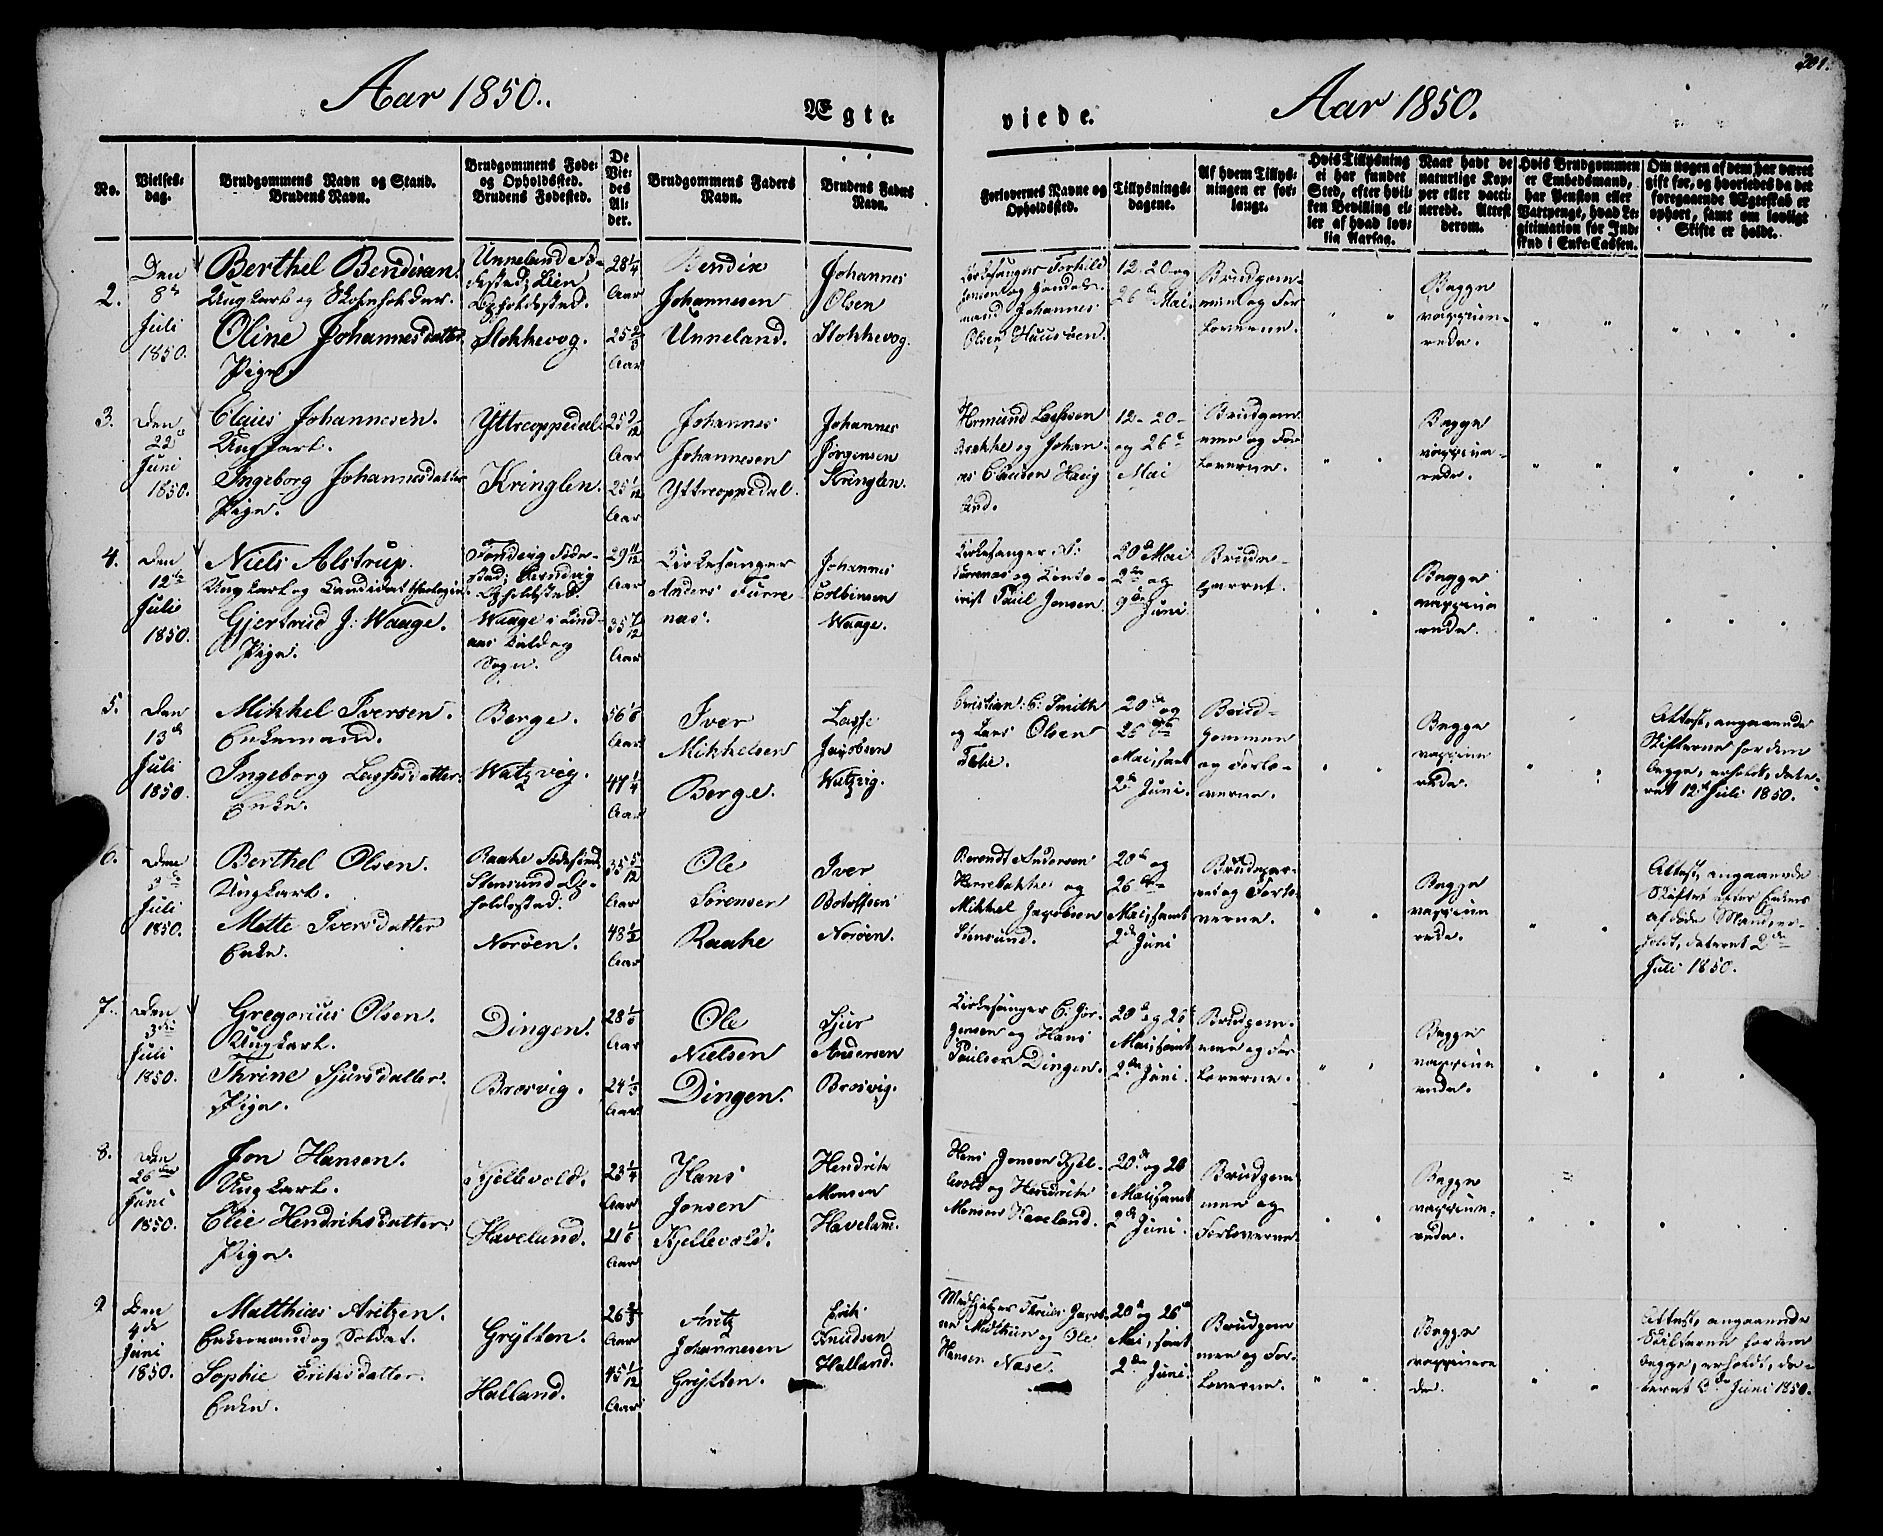 Aar 1850.
Ægte-
viede.
Aar 1850.
201.
No.
Vielses-
dag.
Brudgommens Navn og Stand.
Brudens Navn.
Brudgommens Føde-
og Opholdssted.
Brudens Fødested.
De
Vie-
des
Al-
der.
Brudgommens Faders
Navn.
Brudens Faders
Navn.
Forlovernes Navne og
Opholdssted.
Tillysnings-
dagene.
Af hvem Tillys-
ningen er for-
langt.
Hvis Tillysning
ei har fundet
Sted, efter hvil-
ken Bevilling el-
ler af hvad lov-
lig Aarsag.
Naar havt de
naturlige Kop-
per eller vacci-
nerede. Attest
derom.
Hvis Brudgommen
er Embedsmand,
har Pension eller
Vartpenge, hvad Le-
gitimation for Ind-
skud i Enke-Cassen.
Om nogen af dem har været
gift før, og hvorledes da det
foregaaende Ægteskab er
ophørt, samt om lovligt
Skifte er holdt.
2.
Den
8de
Juli
1850.
Berthel Bendixen.
Ungkarl og
Oline Johannesdatter
Pige.
Unneland Fø-
destad; Lien
Opholdsstad.
Stokkevog.
28 1/4
Aar
25 2/3
Aar
Bendix
Johannesen
Unneland.
Johannes
Olsen
Stokkevog.
Kirkesanger Torkild
Jensen og
Johannes
Olsen
12. 20 og
26de Mai.
Brudgom-
men og For-
loverne.
Begge
vaccine-
rede.
3.
Den
22de
Juni
1850.
Claus Johannesen.
Ungkarl.
Ingeborg Johannesdatter
Pige.
Yttreoppedal
Kringlen.
25 9/12
Aar
25 1/12
Aar
Johannes
Johannesen
Yttreoppedal.
Johannes
Jørgensen
Kringlen.
Hermund Lassesen
Brekke og Johan-
nes Clausen Haug
12 - 20 -
og 26de
Mai
Brudgom-
men og For-
loverne.
Begge
vaccine-
rede.
4.
Den
12te
Juli
1850.
Niels Alstrup.
Ungkarl og Candidat theologiæ.
Gjertrud J: Waage.
Pige.
Føde-
stad;
Opholdsstad
Waage i Lind-
aas Præstegjeld og
Sogn.
29 11/12
Aar
35 7/12
Aar
Kirkesanger
Anders Furre
nas.
Johannes
Colbensen
Waage.
Kirkesanger
Furrenæs og Conto-
rist Paul Jensen.
20de Mai
2den og
9de Juni
Brude-
parret.
Begge
vaccine
rede.
5.
Den
13de
Juli
1850.
Mikkel Iversen.
Enkemand.
Ingeborg Lassesdatter.
Enke.
Berge.
Watzvig.
56 1/6
Aar
47 1/4
Aar
Iver
Mikkelsen
Berge.
Lasse
Jacobsen
Watzvig.
Christian C: Smith
og Lars Olsen
20de og
26de
Mai, samt
2de Juni.
Brud-
gommen
og Forlo-
verne.
Begge
vaccine
rede.
Attest, angaaende
Skifterne for dem
begge, erholdt, date-
ret 12te Juli 1850.
6.
Den
3de
Juli
1850.
Berthel Olsen.
Ungkarl.
Mette Iversdatter
Enke.
Raake Fødestad.
Stensund Op-
holdsstad.
Norøen.
35 5/12
Aar
48 1/2
Aar
Ole
Sørensen
Raake
Iver
Botolfsen
Norøen.
Berendt Andersen
og
Mikkel Jacobsen
Stensund.
20de og
26de
Mai, samt
2de Juni
Brudepar-
ret og Forlo-
verne.
Begge
vaccine
rede.
Attest, angaaende
Skiftet efter Enkens
afdøde Mand, er-
holdt, dateret 2den
Juli 1850.
7.
Den
3die
Juli
1850.
Gregorius Olsen.
Ungkarl.
Thrine Sjursdatter.
Pige.
Dingen.
Brosvig.
28 1/6
Aar
24 1/3
Aar
Ole
Nielsen
Dingen.
Sjur
Andersen
Brosvig.
Kirkesanger C: Jør-
gensen og Hans
Poulsen Dingen.
20de og 26de
Mai, samt
2den Juni.
Brudgom-
men og For-
loverne.
Begge
vaccine
rede.
8.
Den
26de
Juni
1850.
Jon Hansen.
Ungkarl.
Elie Hendriksdatter.
Pige.
Kjellevold.
Haveland.
23 1/4
Aar
21 1/6
Aar
Hans
Jonsen
Kjellevold.
Hendrik
Monsen
Haveland.
Hans Jonsen Kjel-
levold og Hendrik
Monsen Haveland.
20de og 26
Mai, samt
2de Juni.
Brudgom
men og
Forloverne
Begge
vaccine-
rede.
9
Den
4de
Juni
1850.
Matthias Aritzen.
Enkemand og Soldat.
Sophie Eriksdatter.
Enke.
Grytten.
Halland.
26 3/4
Aar
45 1/12
Aar
Aritz
Johannesen
Grytten.
Erik
Knudsen
Halland.
og Ole
Hansen Nase.
20de og 26de
Mai, samt
2den Juni.
Brudgom
men og For-
loverne.
Begge
vaccinere
de.
Attest, angaaende
Skifterne for dem
begge, erholdt, da-
teret 3de Juni 1850.